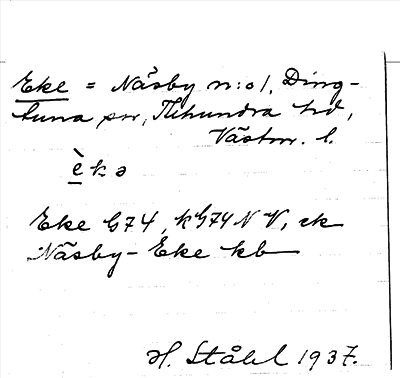 Eke = Näsby n:o 1, Ding-
tuna sn, Tuhundra hd,
Västm. l.
è̱kə
Eke G74, kG74 N V, ek
Näsby-Eke kb
H. Ståhl 1937.